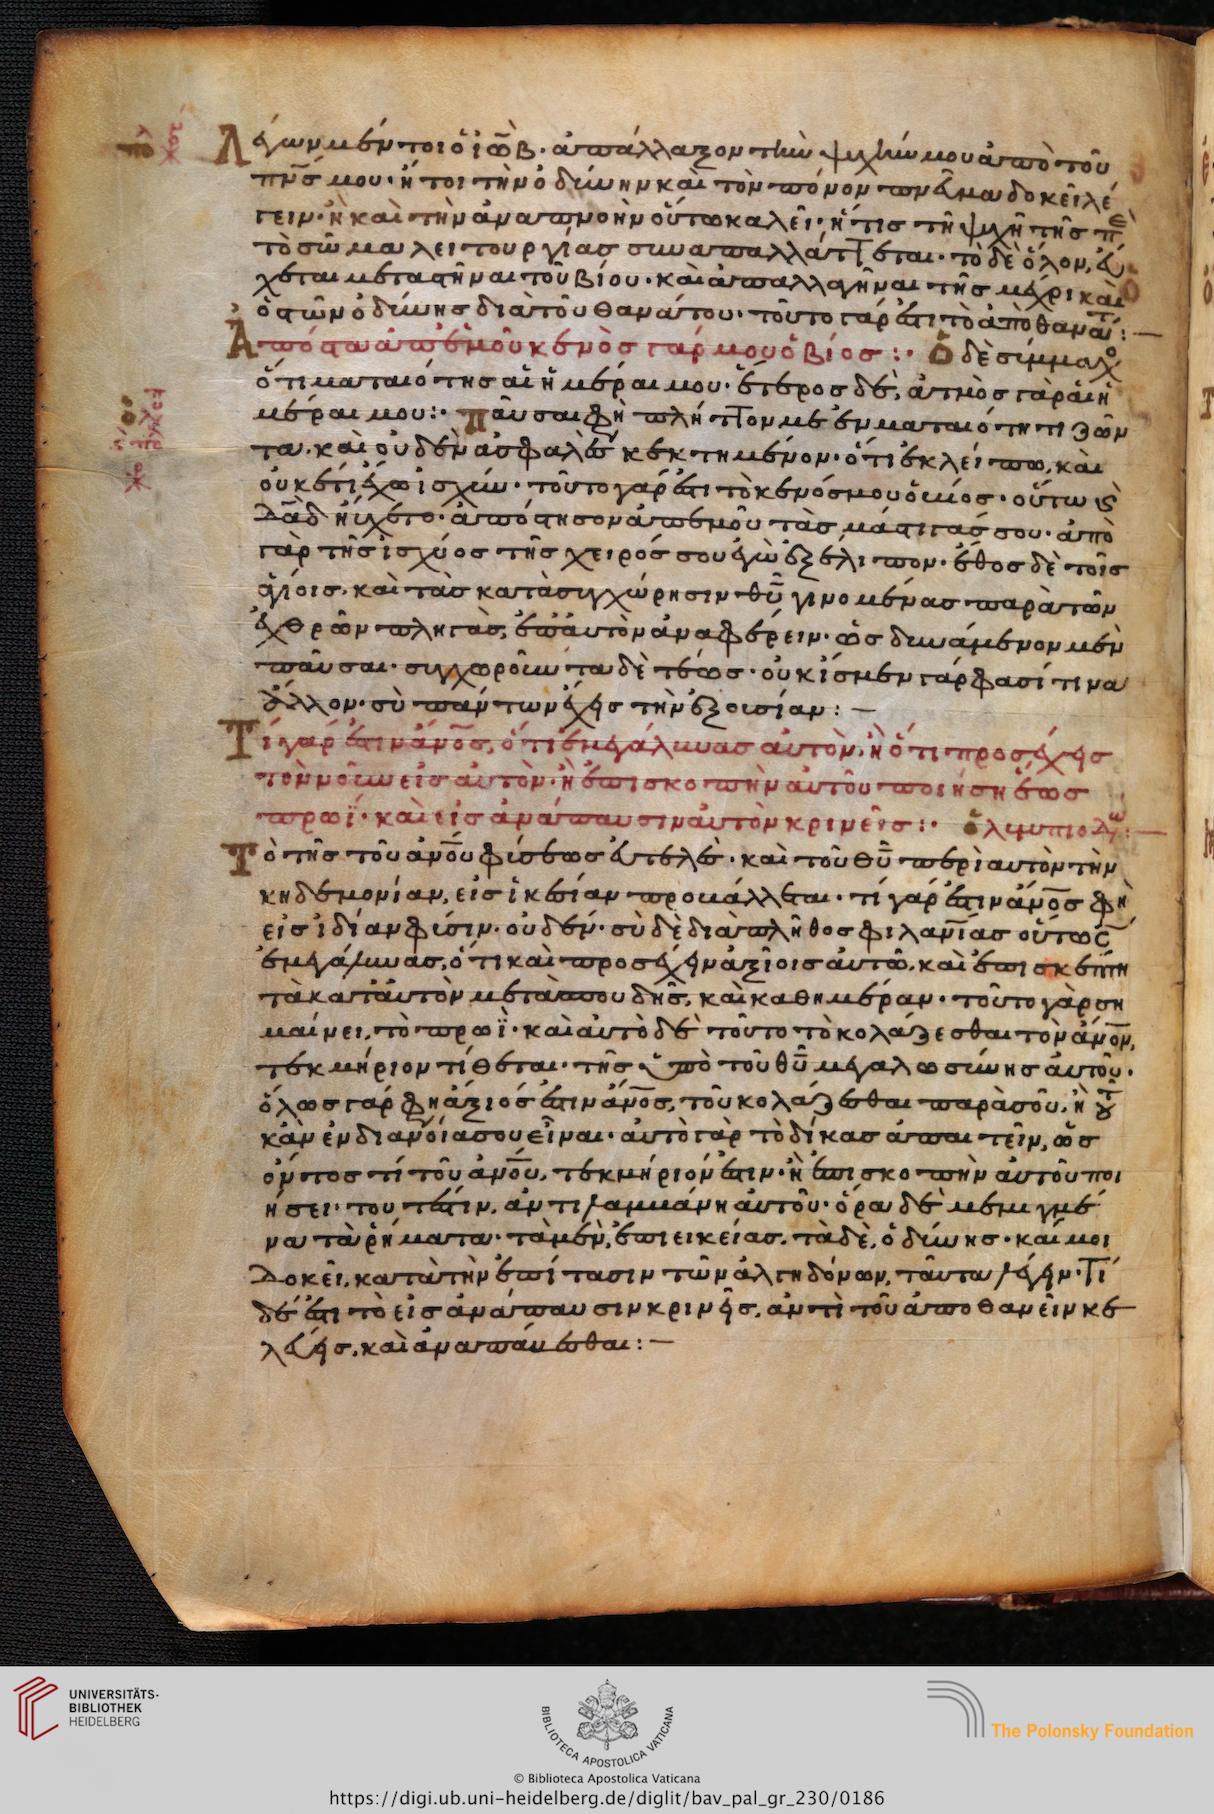 Λέγων μέντοι ὁ ἰώβ· ἀπάλλαξον τὴν ψυχήν μου ἀπὸ τοῦ
πν̅ς μου· ἤτοι τὴν ὀδύνην καὶ τὸν πόνον πνεῦμα δοκεῖ λέ
γειν· ἢ καὶ τὴν ἀναπνοὴν οὕτω καλεῖ· ἥτις τῇ ψυχῇ τῆς π
τὸ σῶμα λειτουργίας συναπαλλάττεται· τὸ δὲ ὅλον, εὔ
χεται μεταστῆναι τοῦ βίου· καὶ ἀπαλλαγῆναι τῆς μέχρι καὶ
ὀστῶν ὀδύνης διὰ τοῦ θανάτου· τοῦτο γάρ ἐστι τὸ ἀποθανεῖν:
Ἀπόστα ἀπ' ἐμοῦ κενὸς γάρ μου ὁ βίος: Ὁ δὲ σύμμαχ
ὅτι ματαιότης αἱ ἡμέραι μου· ἕτερος δέ, ἀτμὸς γὰρ αἱ ἡ
μέραι μου: Παῦσαι φησὶ πλήττον με ἐν ματαιότητι ζῶν
τα· καὶ οὐδὲν ἀσφαλὲς κεκτημένον· ὅτι ἐκλείπω, καὶ
οὐκ ἔτι ἔχω ἰσχύν· τοῦτο γάρ ἐστι τὸ κενός μου ὁ βίος· οὕτω ς
δα̅δ ηὔχετο· ἀπόστησον ἀπ' ἐμοῦ τὰς μάστιγάς σου· ἀπὸ
γὰρ τῆς ἰσχύος τῆς χειρός σου ἐγὼ ἐξέλιπον· ἔθος δὲ τοῖς
ἁγίοις, καὶ τὰς κατὰ συγχώρησιν θυ̅ γινομένας παρὰ τῶν
ἐχθρῶν πληγὰς, ἐπ' αὐτὸν ἀναφέρειν· ὡς δυνάμενον μὲν
παῦσαι· συγχωροῦντα δὲ τέως· οὐκ ἴσμεν γάρ φασί τινα
ἄλλον· σὺ πάντων ἔχεις τὴν ἐξουσίαν:
Τί γάρ ἐστιν ἄνο̅ς, ὅτι ἐμεγάλυνας αὐτὸν, ἢ ὅτι προσέχεις
τὸν νοῦν εἰς αὐτόν· ἢ ἐπισκοπὴν αὐτοῦ ποιήσῃ ἕως
πρωῒ· καὶ εἰς ἀνάπαυσιν αὐτὸν κρινεῖς: ὀλυμπιοδώ:
Τὸ τῆς τοῦ ἀνο̅υ φύσεως εὐτελὲς· καὶ τοῦ θυ̅ περὶ αὐτὸν τὴν
κηδεμονίαν, εἰς ἱκεσίαν προβάλλεται· τί γάρ ἐστιν ἄνο̅ς φη
εἰς ἰδίαν φύσιν· οὐδέν· σὺ δὲ διὰ πλῆθος φιλανί̅ας οὕτως
ἐμεγάλυνας, ὅτι καὶ προσέχειν ἀξιοῖς αὐτῷ, καὶ ἐπισκέπτῃ
τὰ κατ' αὐτὸν μετὰ σπουδῆς, καὶ καθημέραν· τοῦτο γὰρ ση
μαίνει, τὸ πρωῒ· καὶ αὐτὸ δὲ τοῦτο τὸ κολάζεσθαι τὸν ἄνο̅ν,
τεκμήριον τίθεται· τῆς ὑπὸ τοῦ θυ̅ μεγαλωσύνης αὐτοῦ·
ὅλως γάρ φη ἄξιός ἐστιν ἄνο̅ς, τοῦ κολάζεσθαι παρὰ σοῦ, ἢ τοῦ
κἂν ἐν διανοίᾳ σου εἶναι· αὐτὸ γὰρ τὸ δίκας ἀπαιτεῖν, ὡς
ὄντος τί τοῦ ἀνο̅υ, τεκμήριόν ἐστιν· ἢ ἐπισκοπὴν αὐτοῦ ποι
ήσει· τουτέστιν, ἀντιλαμβάνῃ αὐτοῦ· ὅρα δὲ μεμιγμέ
να τὰ ῥήματα· τὰ μὲν, ἐπιεικείας, τὰ δὲ, ὀδύνης· καί μοι
δοκεῖ, κατὰ τὴν ἐπίτασιν τῶν ἀλγηδόνων, ταῦτα λέγειν· Τί
δέ ἐστι τὸ εἰς ἀνάπαυσιν κρινεῖς, ἀντὶ τοῦ ἀποθανεῖν κε
λεύεις, καὶ ἀναπαύεσθαι:
UNIVERSITÄTS-
BIBLIOTHEK
HEIDELBERG
BIBLIOTECA APOSTOLICA VATICANA
The Polonsky Foundation
© Biblioteca Apostolica Vaticana
https://digi.ub.uni-heidelberg.de/diglit/bav_pal_gr_230/0186